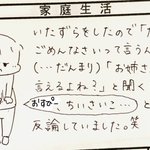 家庭生活
いたずらをしたので「た
ごめんなさいって言うん
(…だんまり)「お姉さ
言えるよね?」と聞く
おすぴー、ちいさいこ… と
反論していました。笑